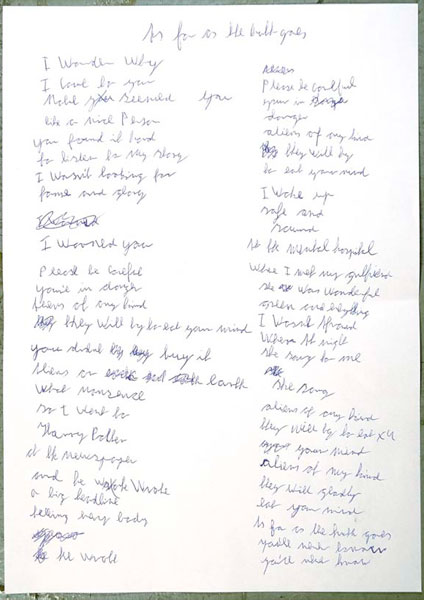 As far as the truth goes
I Wonder Why
I came to you
You seemed
like a nice Person
you found it hard
to listen to my story
I wasn't looking for
fame and glory
I Warned you
Please be careful
you're in danger
Aliens of my kind
they will try to eat your mind
you didn't buy it
Aliens on earth
What nonsense
so I went to
Harry Potter
at the newspaper
and he wrote
a big headline
telling every body
he wrote
Aliens
Please be careful
your in
danger
aliens of my kind
they will try
to eat your mind
I Woke up
safe and
sound
At the Mental hospital
When I met my girlfriend
she was wonderful
green and everything
I Wasn't Afraid
at night
she sang to me
She sang
aliens of my kind
they will try to eat
your mind
aliens of my kind
they will gladly
eat your mind
As far as the truth goes
you'll never know
you'll never know